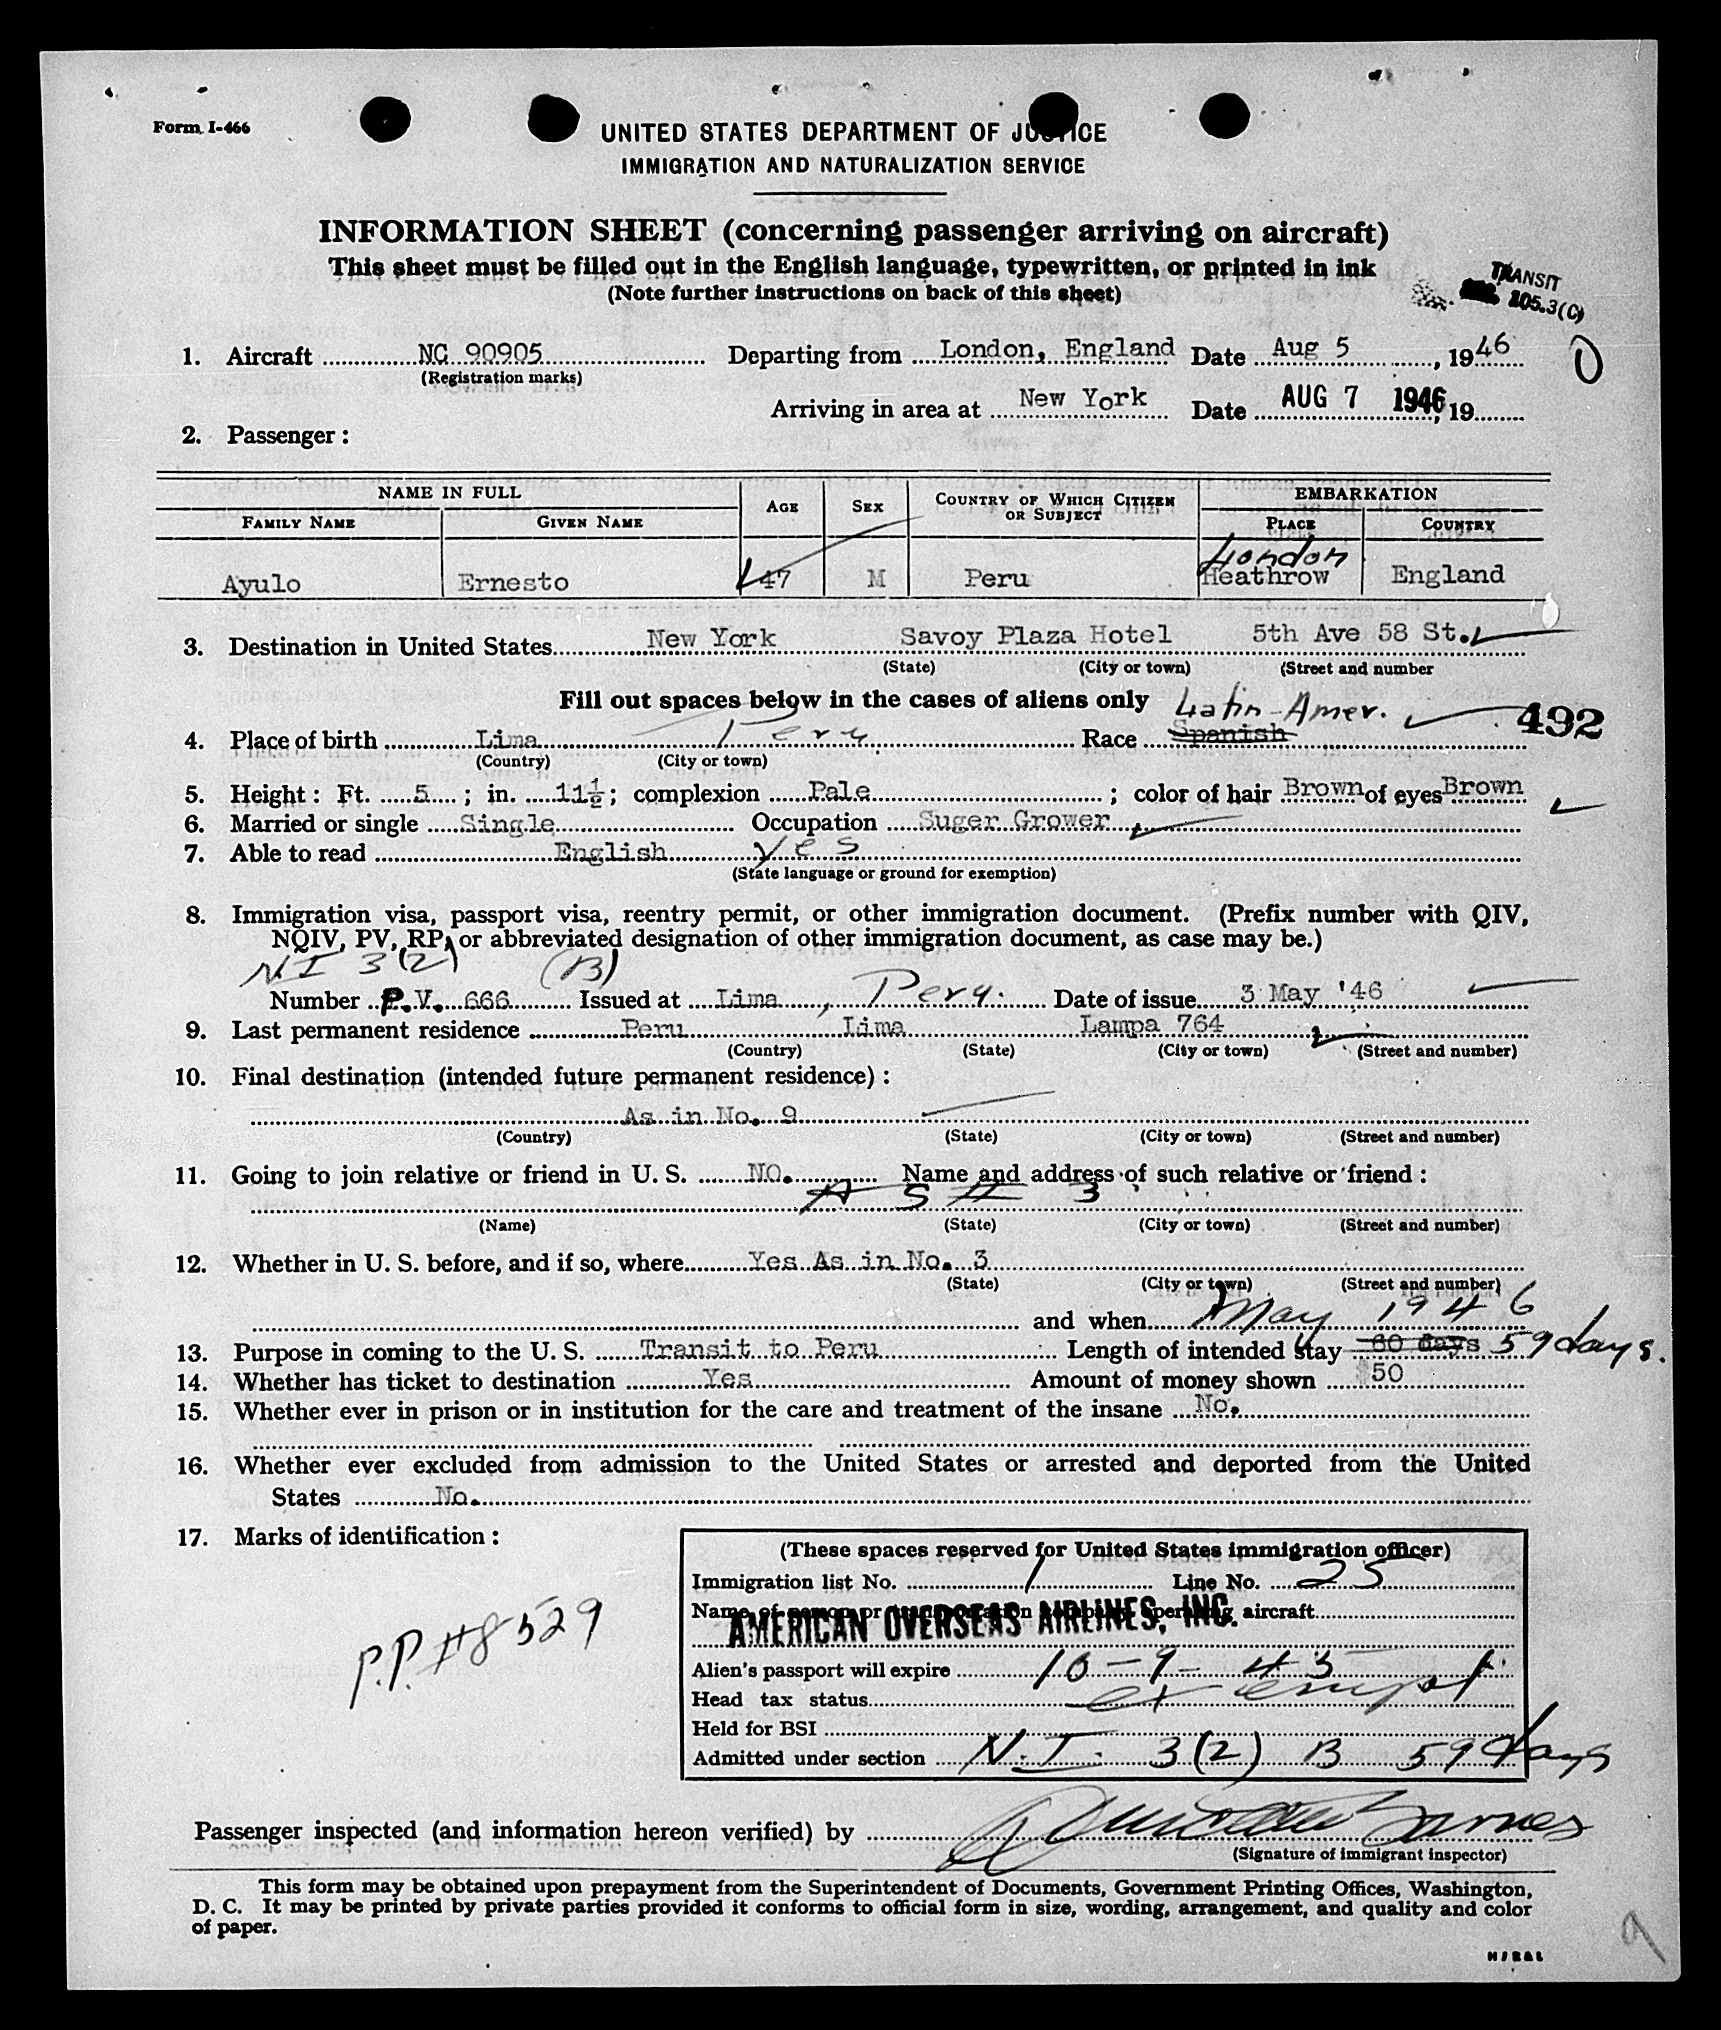 Form I-466
UNITED STATES DEPARTMENT OF JUSTICE
IMMIGRATION AND NATURALIZATION SERVICE
INFORMATION SHEET (concerning passenger arriving on aircraft)
This sheet must be filled out in the English language, typewritten, or printed in ink
(Note further instructions on back of this sheet)
TRANSIT
105.3(C)
1. Aircraft NC 90905 Departing from London, England Date Aug 5, 1946
(Registration marks)
Arriving in area at New York Date AUG 7 1946, 19
2. Passenger:
NAME IN FULL AGE SEX COUNTRY OF WHICH CITIZEN OR SUBJECT EMBARKATION
FAMILY NAME GIVEN NAME PLACE COUNTRY
London
Ayulo Ernesto 47 M Peru Heathrow England
3. Destination in United States New York Savoy Plaza Hotel 5th Ave 58 St.
(State) (City or town) (Street and number
Fill out spaces below in the cases of aliens only Latin-Amer. 492
4. Place of birth Lima Peru Race Spanish
(Country) (City or town)
5. Height: Ft. 5; in. 11½; complexion Pale; color of hair Brown of eyes Brown
6. Married or single Single Occupation Suger Grower
7. Able to read English Yes
(State language or ground for exemption)
8. Immigration visa, passport visa, reentry permit, or other immigration document. (Prefix number with QIV,
NQIV, PV, RP, or abbreviated designation of other immigration document, as case may be.)
NI 3(2) (B)
Number P.V. 666 Issued at Lima, Peru. Date of issue 3 May '46
9. Last permanent residence Peru Lima Lampa 764
(Country) (State) (City or town) (Street and number)
10. Final destination (intended future permanent residence):
As in No. 9
(Country) (State) (City or town) (Street and number)
11. Going to join relative or friend in U. S. NO. Name and address of such relative or friend:
3
(Name) (State) (City or town) (Street and number)
12. Whether in U. S. before, and if so, where Yes As in No. 3
(State) (City or town) (Street and number)
and when May 1946
13. Purpose in coming to the U. S. Transit to Peru Length of intended stay 60 days 59 days.
14. Whether has ticket to destination Yes Amount of money shown $50
15. Whether ever in prison or in institution for the care and treatment of the insane No.
16. Whether ever excluded from admission to the United States or arrested and deported from the United
States No.
17. Marks of identification:
P.P. #8529
(These spaces reserved for United States immigration officer)
Immigration list No. 1 Line No. 25
Name of person or transportation company operating aircraft
AMERICAN OVERSEAS AIRLINES, INC.
Alien's passport will expire 10-9-45
Head tax status exempt
Held for BSI
Admitted under section N.I. 3(2) B 59 days
Passenger inspected (and information hereon verified) by Barnes
(Signature of immigrant inspector)
This form may be obtained upon prepayment from the Superintendent of Documents, Government Printing Offices, Washington,
D. C. It may be printed by private parties provided it conforms to official form in size, wording, arrangement, and quality and color
of paper.